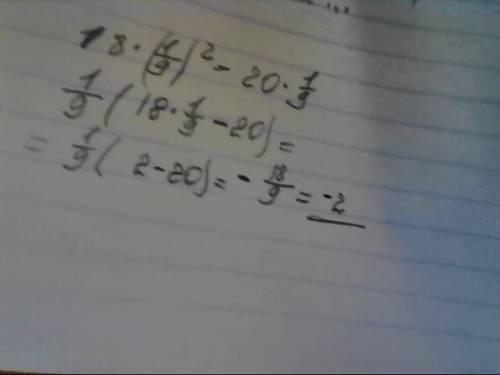 18·(1/9)² - 20·1/9
1/9(18·1/9-20)=
= 1/9(2-20)=-18/9=-2